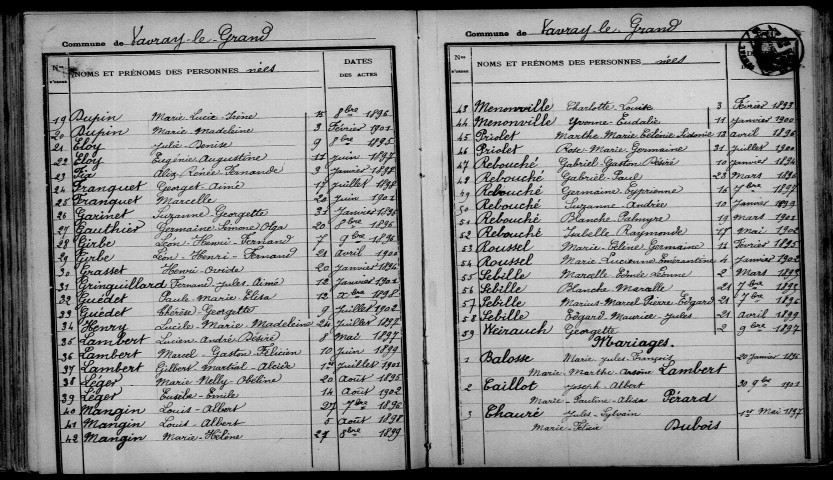 Commune de Vavray-le-Grand
Nos d'ordre NOMS ET PRÉNOMS DES PERSONNES nées DATES DES ACTES
19 Dupin Marie Lucie Irène 15 8bre 1896
20 Dupin Marie-Madeleine 3 Février 1901
21 Eloy Julie Denise 9 8bre 1895
22 Eloy Eugénie Augustine 11 Juin 1897
23 Fix Alix Renée Fernande 3 Janvier 1898
24 Franquet Georget-Aimé 17 Juillet 1898
25 Franquet Marcelle 20 Juin 1901
26 Garinet Suzanne Georgette 31 Janvier 1895
27 Gauthier Germaine Simone Olga 20 8bre 1896
28 Girbe Léon-Henri-Fernand 7 9bre 1896
29 Girbe Léon-Henri-Fernand 21 Avril 1900
30 Grasset Henri-Ovide 20 Janvier 1894
31 Gringuillard Fernand Jules Aimé 12 Janvier 1901
32 Guédet Paule-Marie-Elisa 12 Xbre 1898
33 Guédet Thérèse Georgette 9 Juillet 1902
34 Henry Lucile-Marie-Madeleine 24 Juillet 1897
35 Lambert Lucien-André Désiré 8 Mai 1897
36 Lambert Marcel-Gaston Félicien 10 Juin 1899
37 Lambert Gilbert Martial-Alcide 1er Juillet 1901
38 Léger Marie Nelly-Obéline 20 Août 1895
39 Léger Eusèbe-Emile 14 Août 1902
40 Mangin Louis-Albert 27 7bre 1896
41 Mangin Louis-Albert 5 Août 1898
42 Mangin Marie-Hélène 27 8bre 1899
Commune de Vavray-le-Grand
Nos d'ordre NOMS ET PRÉNOMS DES PERSONNES nées
43 Menonville Charlotte Louise 3 Février 1893
44 Menonville Yvonne-Eudalie 11 Janvier 1900
45 Priolet Marthe Marie Sidonie 13 Avril 1896
46 Priolet Rose-Marie Germaine 31 Juillet 1900
47 Rebouché Gabriel-Gaston Désiré 10 Janvier 1894
48 Rebouché Gabriel-Paul 23 Mars 1896
49 Rebouché Germaine Cyprienne 16 7bre 1897
50 Rebouché Suzanne Andrée 10 Janvier 1899
51 Rebouché Blanche Palmyre 19 Mars 1901
52 Rebouché Isabelle Raymonde 17 Mai 1902
53 Roussel Marie-Céline Germaine 14 Février 1895
54 Roussel Marie Lucienne Emérantine 4 Janvier 1902
55 Sébille Marcelle Edmée Léonne 2 Mars 1893
56 Sébille Blanche Marcelle 21 7bre 1895
57 Sébille Marius-Marcel Pierre-Edgard 21 7bre 1896
58 Sébille Edgard Maurice Jules 21 Avril 1899
59 Weirauch Georgette 2 9bre 1897
Mariages.
1 Balosse Marie Jules-François 20 Janvier 1896
Marie-Marthe-Arsène Lambert
2 Caillot Joseph-Albert 30 9bre 1901
Marie-Pauline-Alida Pérard
3 Thauré Jules-Sylvain 1er Mai 1897
Marie-Félicie Dubois